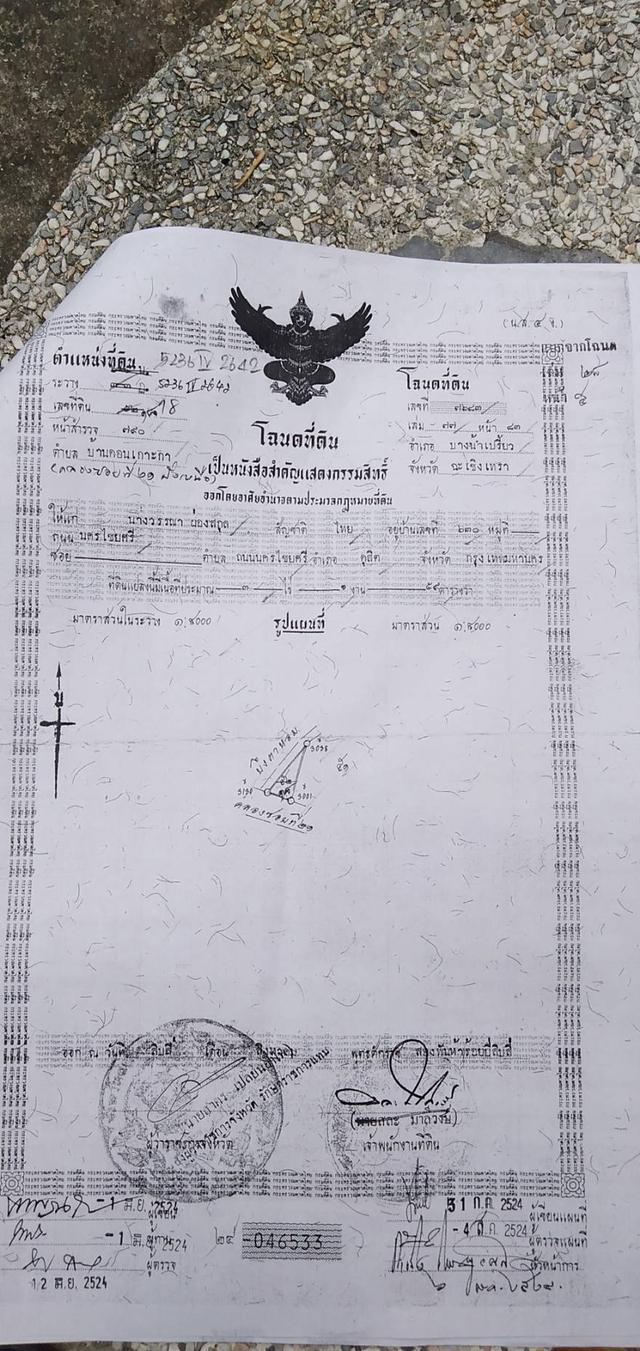 (น.ส. ๔ จ.)
ตำแหน่งที่ดิน 5236 IV 2642
ระวาง 5236 IV 2642
เลขที่ดิน 18
หน้าสำรวจ ๗๙๐
ตำบล บ้านดอนเกาะกา
โฉนดที่ดิน
เลขที่ ๗๖๘๓
เล่ม ๗๗ หน้า ๘๓
อำเภอ บางน้ำเปรี้ยว
จังหวัด ฉะเชิงเทรา
โฉนดที่ดิน
เป็นหนังสือสำคัญแสดงกรรมสิทธิ์
ออกโดยอาศัยอำนาจตามประมวลกฎหมายที่ดิน
ให้แก่ นางวรรณา ผ่องสกุล สัญชาติ ไทย อยู่บ้านเลขที่ ๖๓๐ หมู่ที่
ถนน นครไชยศรี
ซอย ตำบล ถนนนครไชยศรี อำเภอ ดุสิต จังหวัด กรุงเทพมหานคร
ที่ดินแปลงนี้มีเนื้อที่ประมาณ ๓ ไร่ ๑ งาน ๕๙ ตารางวา
มาตราส่วนในระวาง ๑:๔๐๐๐ รูปแผนที่ มาตราส่วน ๑:๔๐๐๐
น
คลองซอยที่๒๑
ออก ณ วันที่ สิบสี่ เดือน สิงหาคม พุทธศักราช สองพันห้าร้อยยี่สิบสี่
ผู้ว่าราชการจังหวัด
เจ้าพนักงานที่ดิน
-1 มิ.ย. 2524 ผู้เขียน
-1 มิ.ย. 2524 ผู้ทาน
12 มิ.ย. 2524 ผู้ตรวจ
๒๔ -046533
31 ก.ค. 2524 ผู้เขียนแผนที่
-4 ส.ค. 2524 ผู้ตรวจแผนที่
หัวหน้าการ